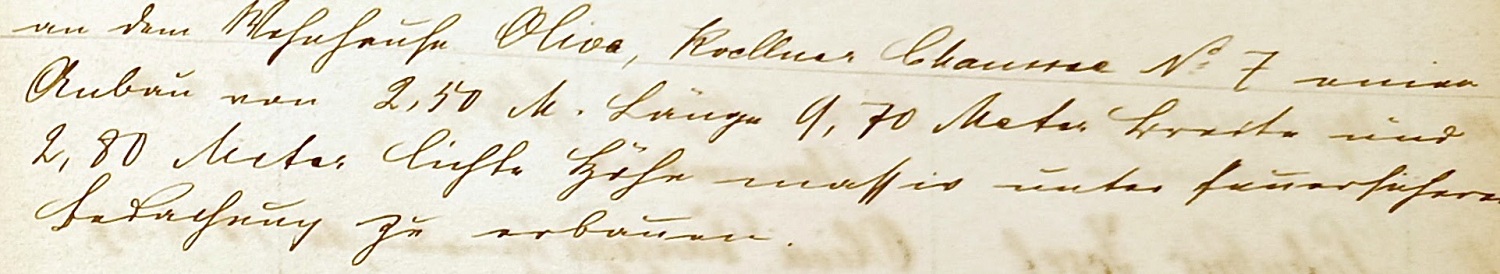 an dem Wohnhause Oliva, Koellner Chaussee No 7 einen
Anbau von 2,50 M. Länge 9,70 Meter Breite und
2,80 Meter lichte Höhe massiv unter feuersicherer
Bedachung zu erbauen.